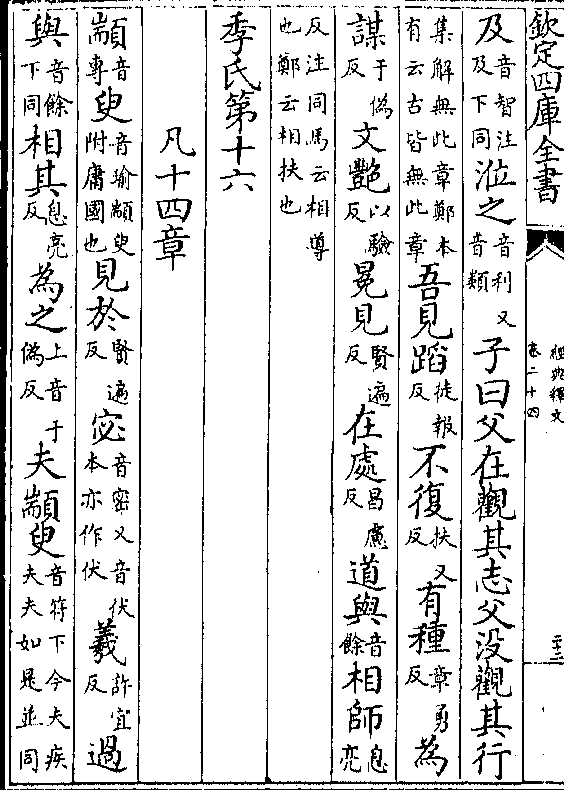 欽定四庫全書
經典釋文
卷二十四
及音智注及下同涖之音利又音類子曰父在觀其志父没觀其行
集解無此章鄭本有云古皆無此章吾見蹈徒報反不復扶又反有種章勇反為
謀于偽反文艷以驗反冕見賢遍反在處昌慮反道與音餘相師息亮
反注同馬云相導也鄭云相扶也
季氏第十六
凡十四章
顓音專臾音瑜顓臾附庸國也見於賢遍反宓音密又音伏本亦作伏羲許宜反過
與音餘下同相其息亮反為之上音于偽反夫顓臾音符下今夫疾夫夫如是並同